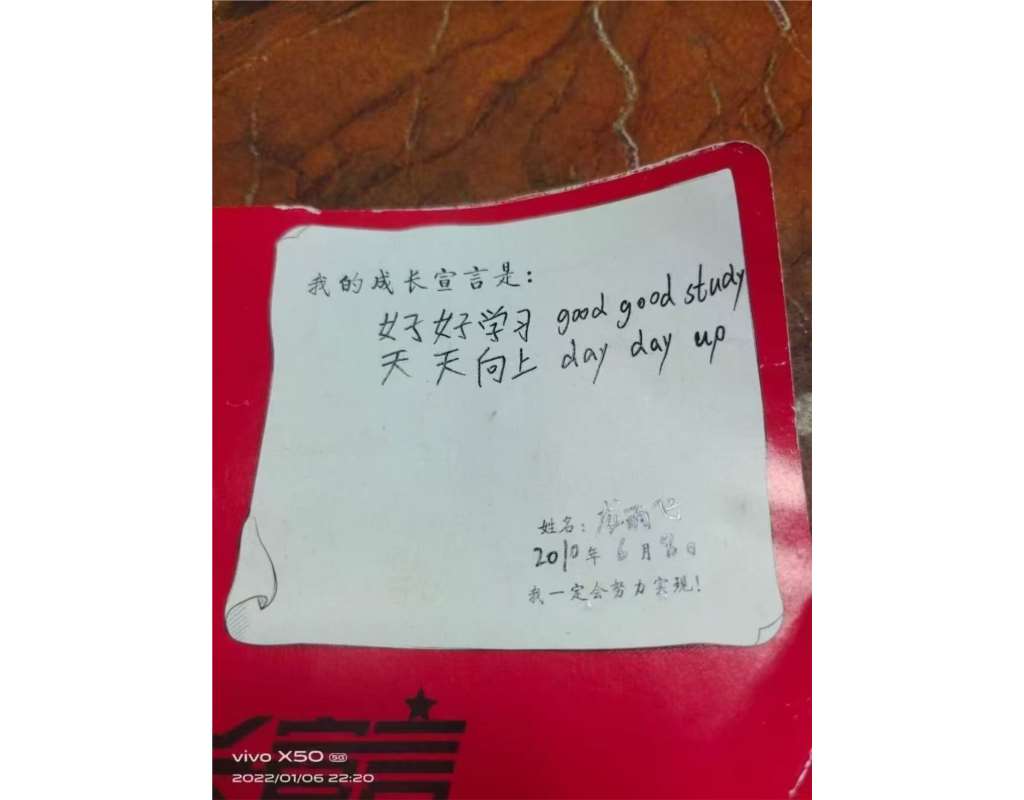 我的成长宣言是：
好好学习 good good study
天天向上 day day up
姓名：
2010年6月 日
我一定会努力实现！
宣言
vivo X50 5G
2022/01/06 22:20